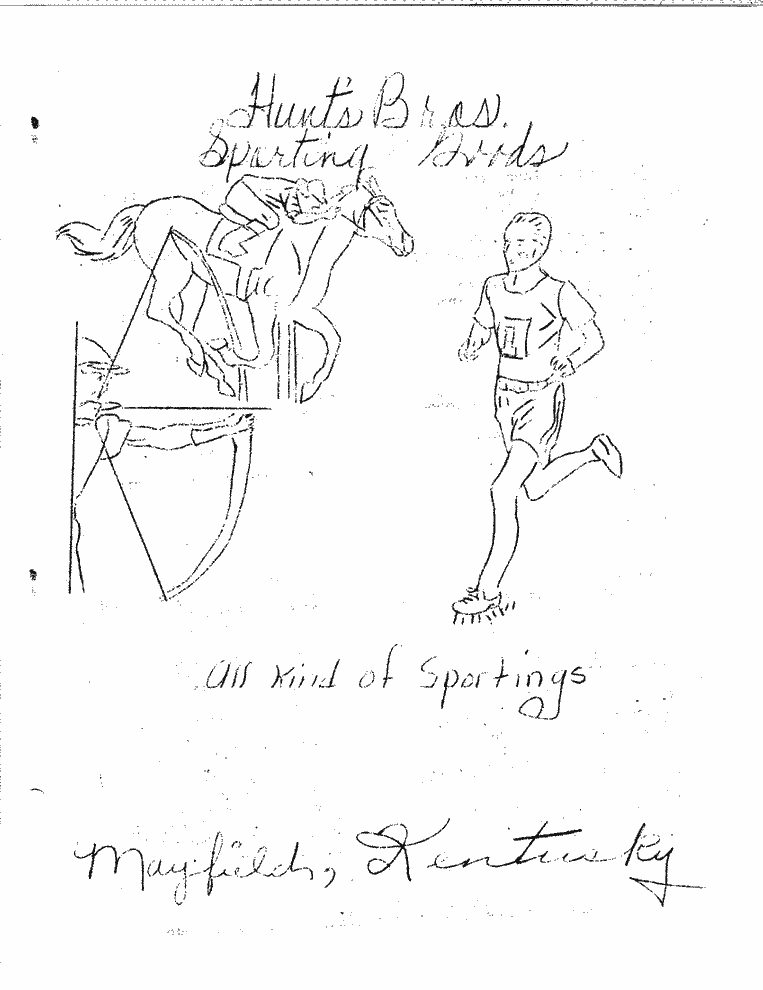 Hunt's Bros.
Sporting Goods
All Kind of Sportings
Mayfield, Kentusky